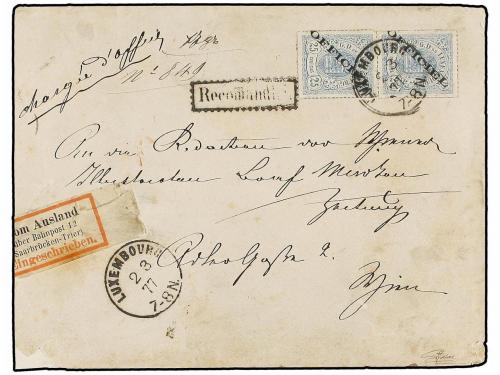 chargée d'office
No 849
Recomandirt
25 OFFICIEL OFFICIEL 25
LUXEMBOURG
2 3
77
7-8N
An die Redaction der Wiener
Illustrirten
Zeitung
Adlergasse 2.
Wien
om Ausland
über Bahnpost 12
(Saarbrücken-Trier)
Eingeschrieben.
LUXEMBOURG
2 3
77
7-8N